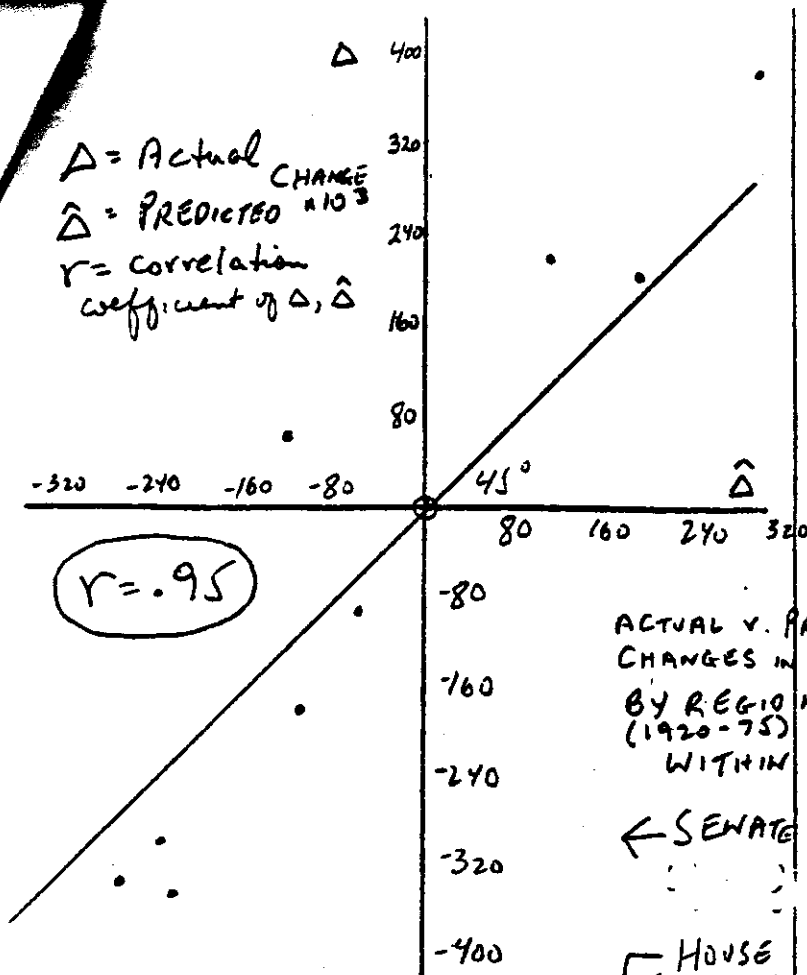 Δ 400
Δ = Actual
CHANGE
Δ̂ = PREDICTED ×10³
r = correlation
coefficient of Δ, Δ̂
320
240
160
80
-320 -240 -160 -80
45°
Δ̂
80 160 240 320
r = .95
-80
-160
-240
-320
-400
ACTUAL V.
CHANGES IN
BY REGION
(1920-75)
WITHIN
← SENATE
HOUSE